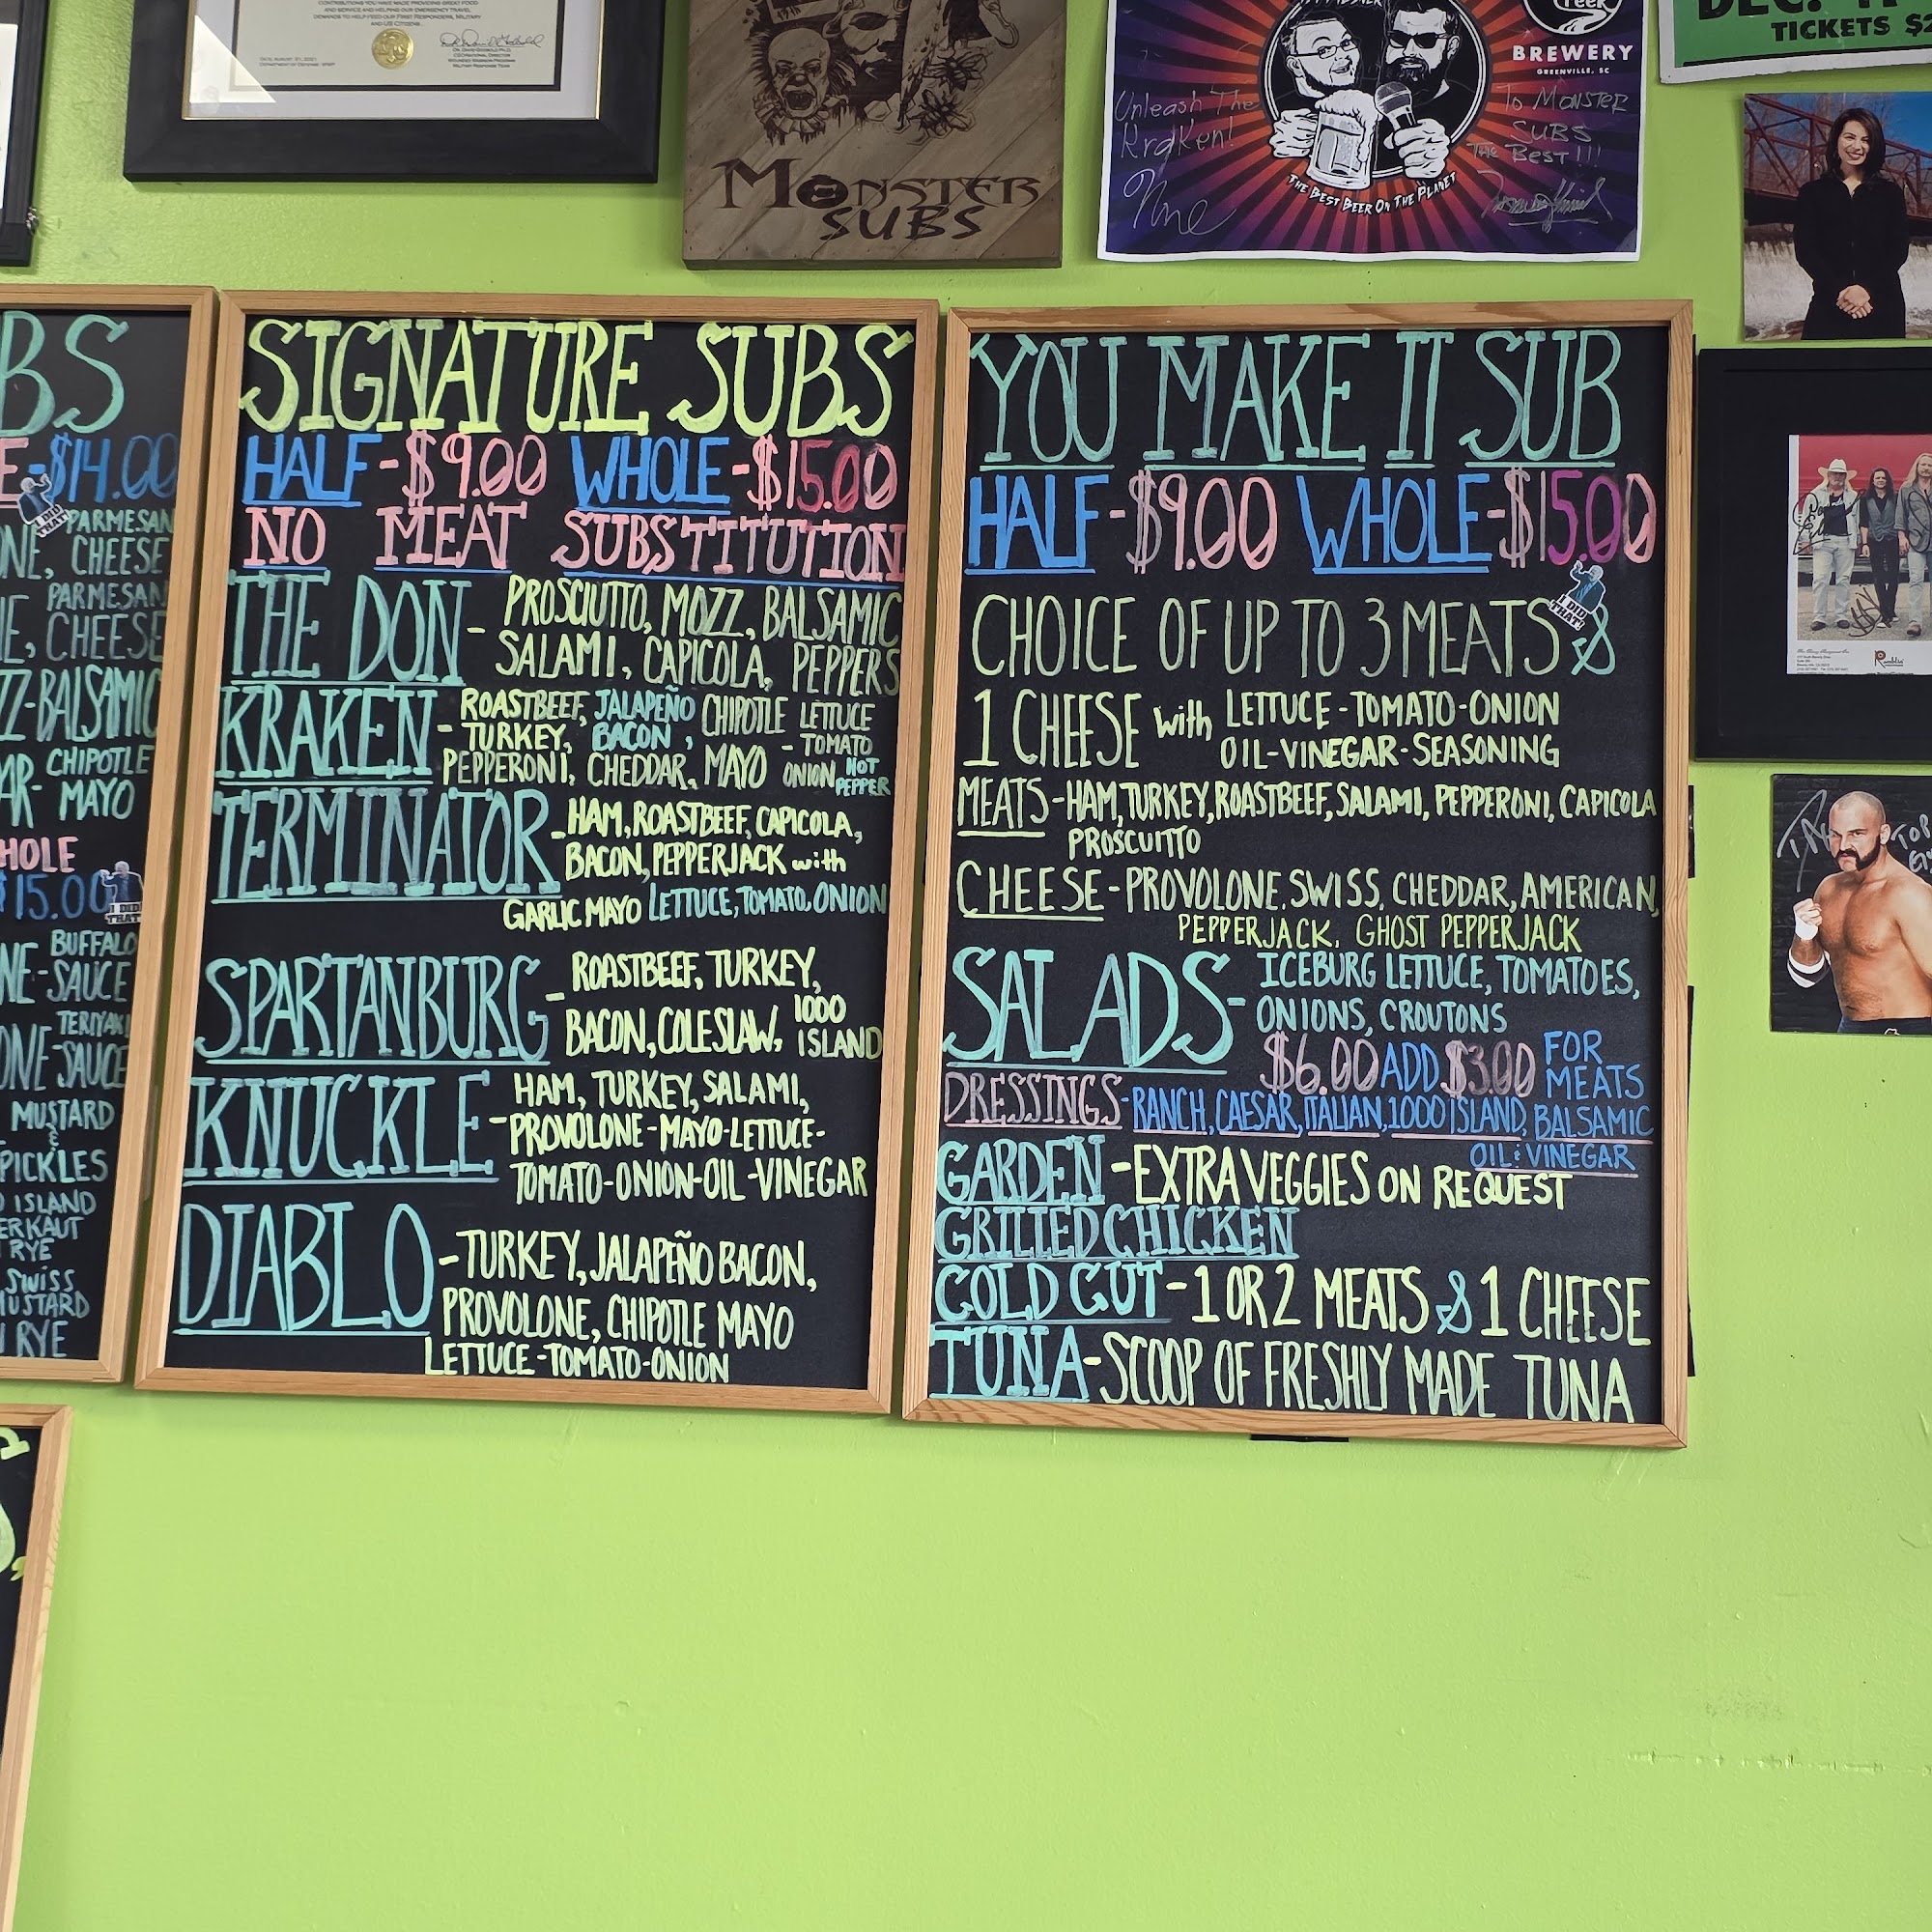 CONTRIBUTIONS YOU HAVE MADE PROVIDING GREAT FOOD
AND SERVICE AND HELPING OUR EMERGENCY TRAVEL
DEMANDS TO HELP FEED OUR FIRST RESPONDERS, MILITARY
AND US CITIZENS.
MONSTER
SUBS
Unleash The
Kraken!
BREWERY
GREENVILLE, SC
To MONSTER
SUBS
THE BEST!!!
THE BEST BEER ON THE PLANET
DEC.
TICKETS $2
BS
E-$14.00
I DID THAT!
PARMESAN
NE, CHEESE
PARMESAN
E, CHEESE
Z-BALSAMIC
AR- CHIPOTLE
MAYO
HOLE
$15.00
I DID THAT!
BUFFALO
NE-SAUCE
TERIYAKI
ONE-SAUCE
MUSTARD
&
PICKLES
ISLAND
ERKAUT
RYE
SWISS
MUSTARD
RYE
SIGNATURE SUBS
HALF-$9.00 WHOLE-$15.00
NO MEAT SUBSTITUTION
THE DON - PROSCIUTTO, MOZZ, BALSAMIC
SALAMI, CAPICOLA, PEPPERS
KRAKEN - ROASTBEEF, JALAPEÑO CHIPOTLE LETTUCE
TURKEY, BACON, - TOMATO
PEPPERONI, CHEDDAR, MAYO ONION HOT
PEPPER
TERMINATOR - HAM, ROASTBEEF, CAPICOLA,
BACON, PEPPERJACK with
GARLIC MAYO LETTUCE, TOMATO, ONION
SPARTANBURG - ROASTBEEF, TURKEY,
BACON, COLESLAW, 1000
ISLAND
KNUCKLE - HAM, TURKEY, SALAMI,
PROVOLONE-MAYO-LETTUCE-
TOMATO-ONION-OIL-VINEGAR
DIABLO - TURKEY, JALAPEÑO BACON,
PROVOLONE, CHIPOTLE MAYO
LETTUCE-TOMATO-ONION
YOU MAKE IT SUB
HALF-$9.00 WHOLE-$15.00
I DID THAT!
CHOICE OF UP TO 3 MEATS &
1 CHEESE with LETTUCE-TOMATO-ONION
OIL-VINEGAR-SEASONING
MEATS-HAM, TURKEY, ROASTBEEF, SALAMI, PEPPERONI, CAPICOLA
PROSCUITTO
CHEESE-PROVOLONE, SWISS, CHEDDAR, AMERICAN,
PEPPERJACK, GHOST PEPPERJACK
SALADS- ICEBURG LETTUCE, TOMATOES,
ONIONS, CROUTONS
$6.00 ADD $3.00 FOR
MEATS
DRESSINGS-RANCH, CAESAR, ITALIAN, 1000 ISLAND, BALSAMIC
OIL & VINEGAR
GARDEN-EXTRA VEGGIES ON REQUEST
GRILLED CHICKEN
COLD CUT-1 OR 2 MEATS & 1 CHEESE
TUNA-SCOOP OF FRESHLY MADE TUNA